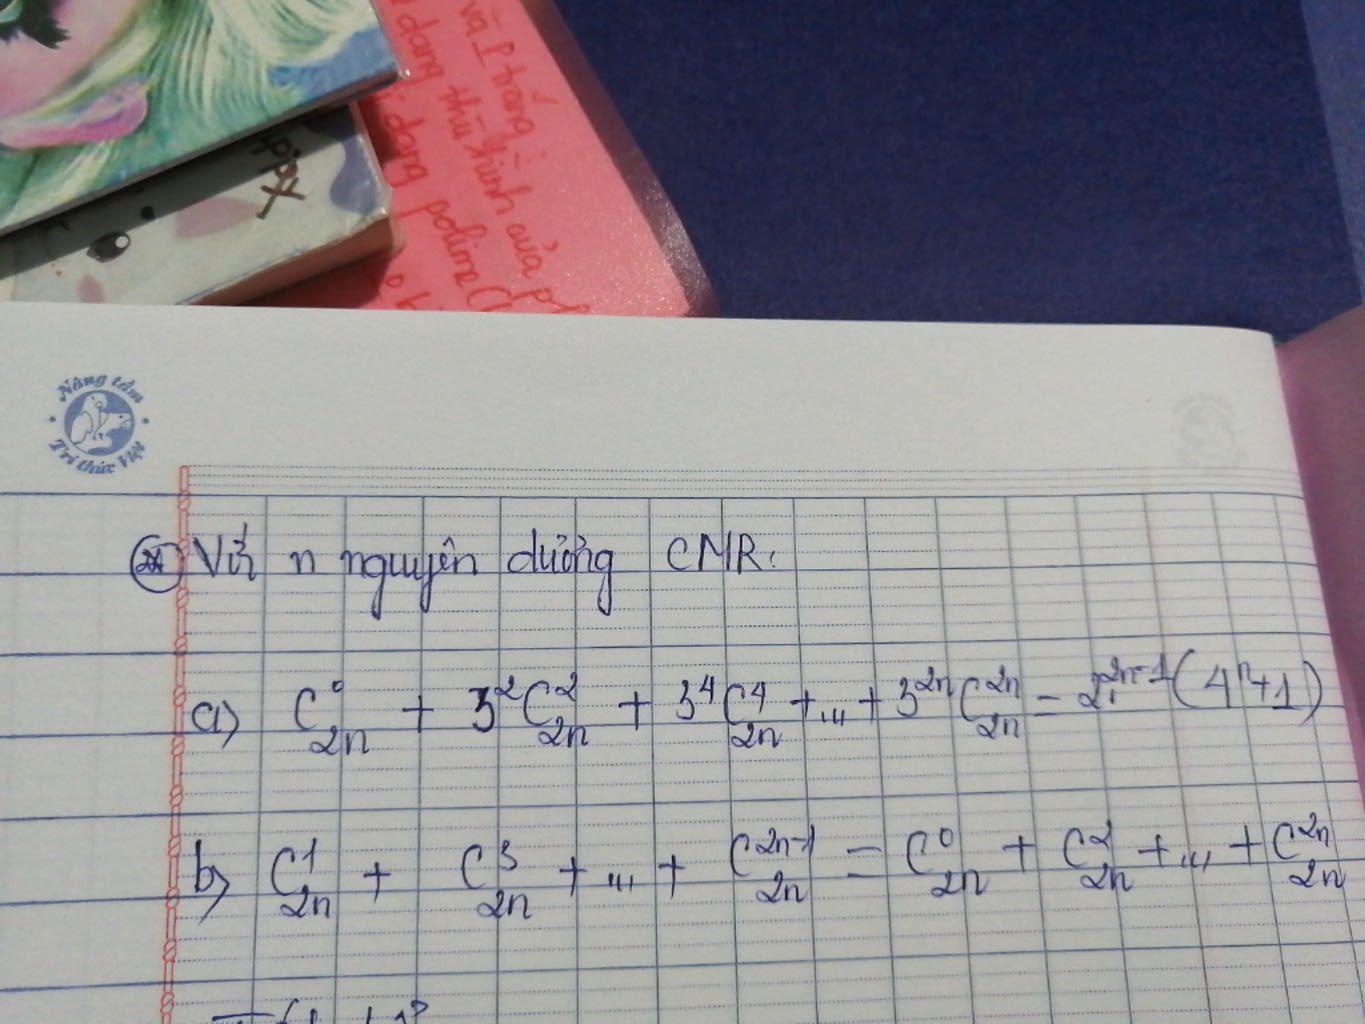 và P trắng
dạng thù hình của p
dạng polime (
Nâng tầm
Tri thức Việt
Với n nguyên dương CMR:
a) C⁰₂ₙ + 3²C²₂ₙ + 3⁴C⁴₂ₙ + ... + 3²ⁿC²ⁿ₂ₙ = 2²ⁿ⁻¹(4ⁿ+1)
b) C¹₂ₙ + C³₂ₙ + ... + C²ⁿ⁻¹₂ₙ = C⁰₂ₙ + C²₂ₙ + ... + C²ⁿ₂ₙ